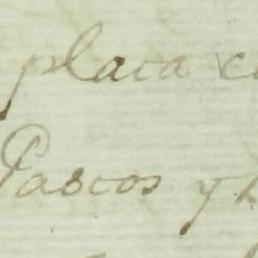 placa
Pascos y